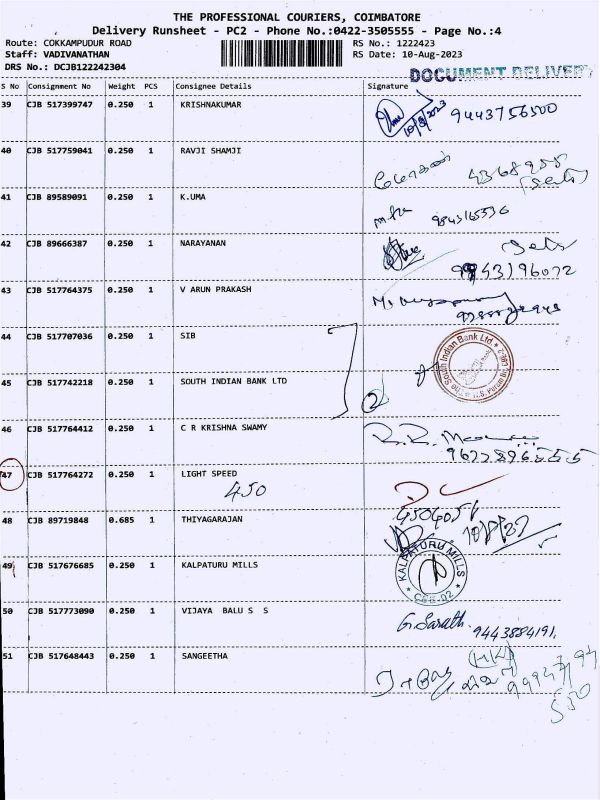 THE PROFESSIONAL COURIERS, COIMBATORE
Delivery Runsheet - PC2 - Phone No.:0422-3505555 - Page No.:4
Route: COKKAMPUDUR ROAD RS No.: 1222423
Staff: VADIVANATHAN RS Date: 10-Aug-2023
DRS No.: DCJB122242304
DOCUMENT DELIVERY
S No Consignment No Weight PCS Consignee Details Signature
39 CJB 517399747 0.250 1 KRISHNAKUMAR 10/8/2023 9443756500
40 CJB 517759041 0.250 1 RAVJI SHAMJI
41 CJB 89589091 0.250 1 K.UMA
42 CJB 89666387 0.250 1 NARAYANAN
43 CJB 517764375 0.250 1 V ARUN PRAKASH
44 CJB 517707036 0.250 1 SIB
The South Indian Bank Ltd
45 CJB 517742218 0.250 1 SOUTH INDIAN BANK LTD
46 CJB 517764412 0.250 1 C R KRISHNA SWAMY
47 CJB 517764272 0.250 1 LIGHT SPEED
450
48 CJB 89719848 0.685 1 THIYAGARAJAN
49 CJB 517676685 0.250 1 KALPATURU MILLS
KALPATURU MILLS
50 CJB 517773090 0.250 1 VIJAYA BALU S S
G. Sarath. 9443884191
51 CJB 517648443 0.250 1 SANGEETHA